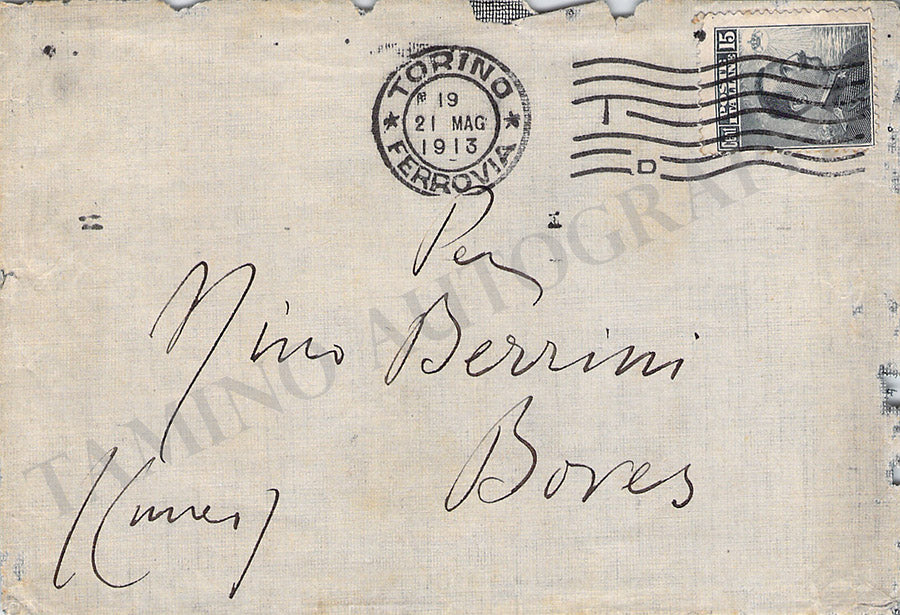 TORINO
19
21 MAG
1913
FERROVIA
15
D
Per
Nino Berrini
Boves
(Cuneo)
TAMINO AUTOGRAPH